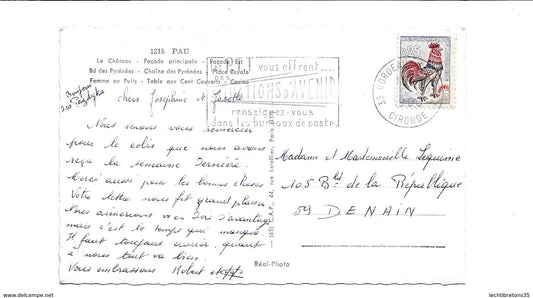 1218 PAU
Le Château - Façade principale - Façade Est
Bd des Pyrénées - Chaîne des Pyrénées - Place Royale
Femme au Puits - Table aux Cent Couverts - Casino
Bonjour
chers Joséphine et Josette
Nous venons vous remercier
pour le colis que nous avons
reçu la semaine dernière.
Merci aussi pour les bonnes choses
Votre lettre nous fit grand plaisir
Nous aimerions vous d'avantage
mais c'est le temps qui manque.
Il faut toujours courir, quant
à nous tout va bien.
Vous embrassons Robert
vous offrent....
D'AVENIR
renseignez-vous
dans les bureaux de poste
25
33 BORDEAUX
GIRONDE
Madame et Mademoiselle Lequimme
105 Bld de la République
59 DENAIN
(65) C.A.P., 44, rue Letellier, Paris (15e)
Réal-Photo
lechtibretons35